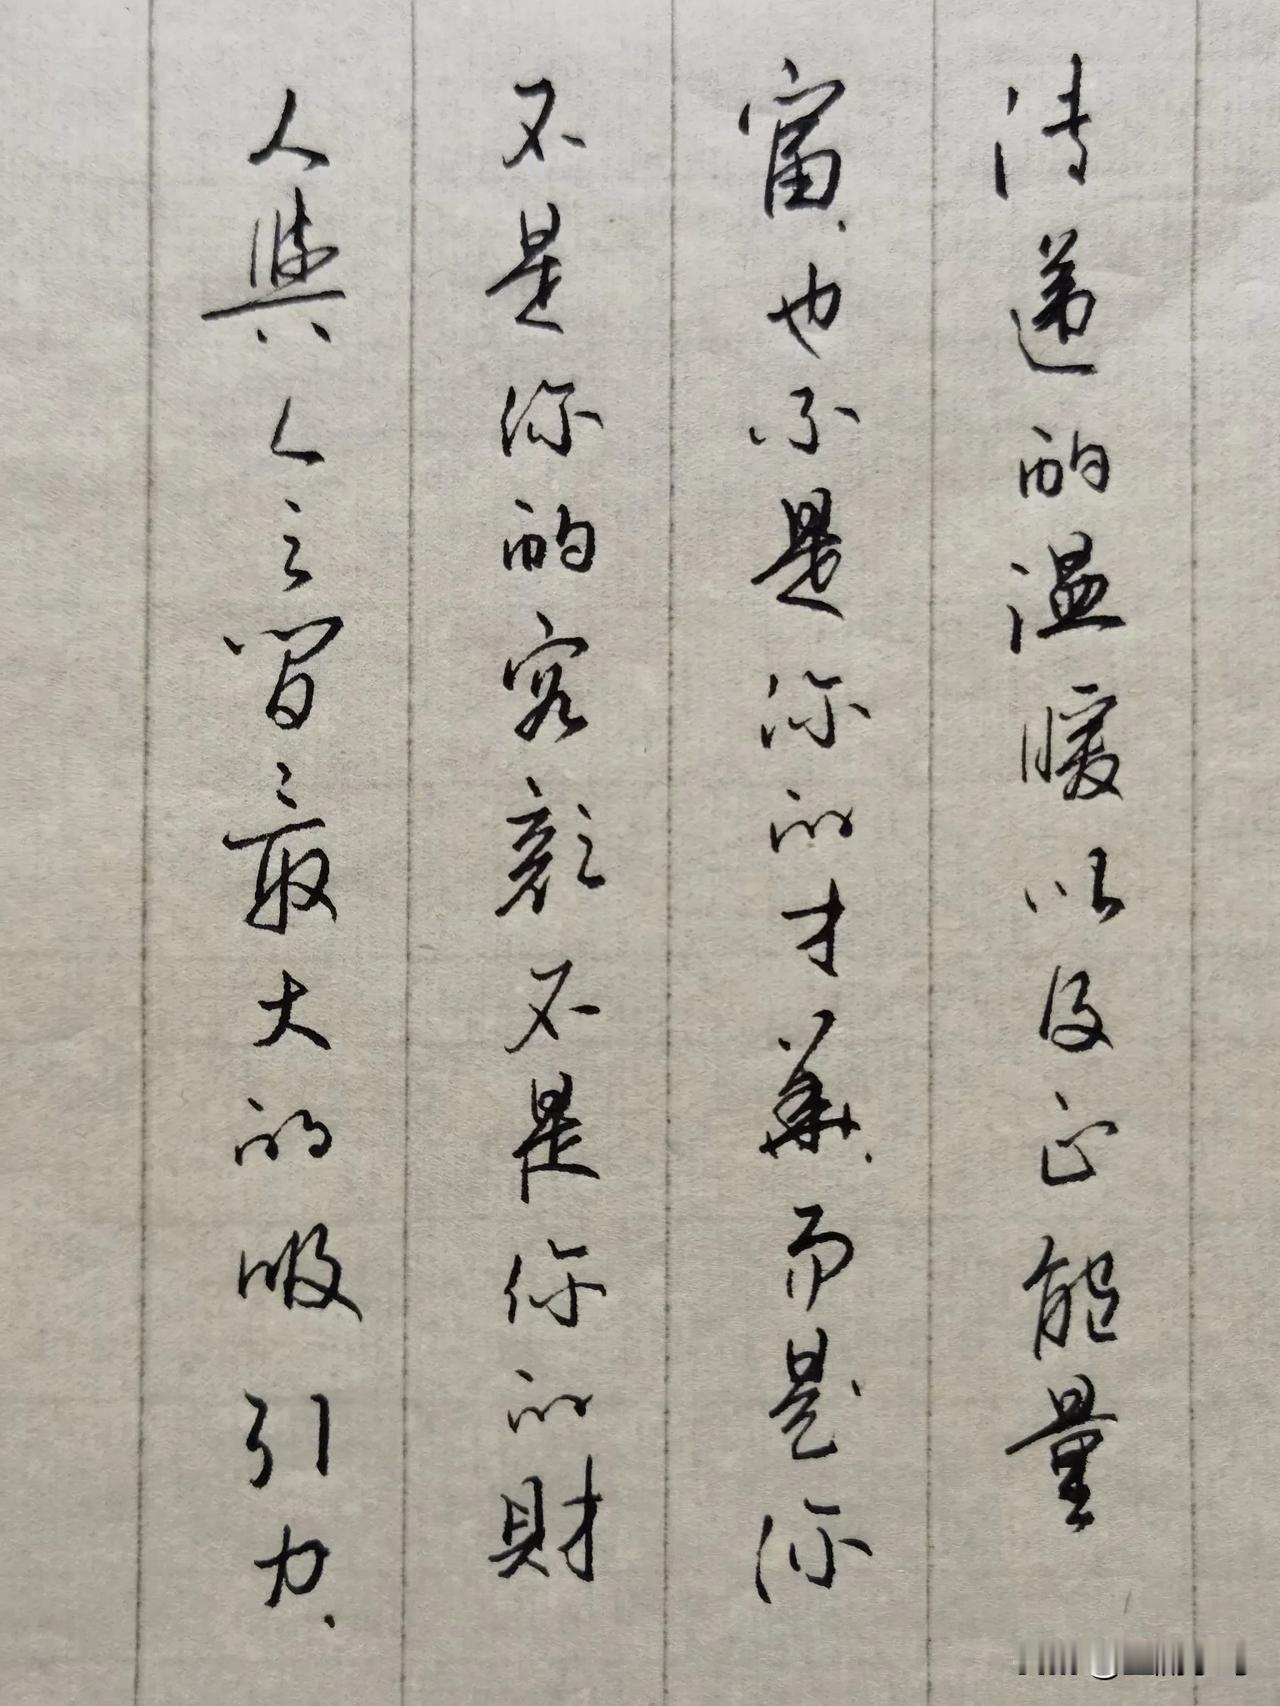 人與人之間最大的吸引力.
不是你的容顏不是你的財
富.也不是你的才華.而是你
传递的温暖以及正能量